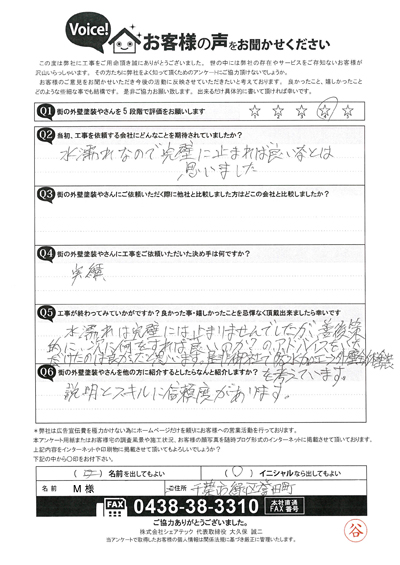 Voice!
お客様の声をお聞かせください
この度は弊社に工事をご用命頂き誠にありがとうございました。世の中には弊社の存在やサービスをご存知ないお客様が
沢山いらっしゃいます。その方たちに弊社をよく知って頂くためのアンケートにご協力頂けないでしょうか。
お客様のご意見をお聞かせいただき今後の活動に反映させていただきたいと考えております。良かったこと、嬉しかったこと
どのような些細な事でも結構です。是非ご協力お願い致します。出来るだけ具体的に書いて頂ければ幸いです。
Q1 街の外壁塗装やさんを5段階で評価をお願いします ☆ ☆ ☆ ☆ ☆
Q2 当初、工事を依頼する会社にどんなことを期待されていましたか?
水漏れなので完璧に止まれば良いなとは
思いました
Q3 街の外壁塗装やさんにご依頼いただく際に他社と比較しました方はどこの会社と比較しましたか?
Q4 街の外壁塗装やさんに工事をご依頼いただいた決め手は何ですか?
実績
Q5 工事が終わってみていかがですか?良かった事・嬉しかったことを忌憚なく頂戴出来ましたら幸いです
水漏れは完璧には止まりませんでしたが、善後策
的に、次に何をすれば良いのか?のアドバイスをいた
だけたのは良かったと思います。
を考えています。
Q6 街の外壁塗装やさんを他の方に紹介するとしたらなんと紹介しますか?
説明とスキルに信頼度があります。
*弊社は広告宣伝費を極力かけない為にホームページだけを頼りにお客様への営業活動を行っております。
本アンケート用紙またはお客様宅の調査風景や施工状況、お客様の顔写真を随時ブログ形式のインターネットに掲載させて頂いております。
上記内容をインターネットや印刷物に掲載させて頂いてもよろしいでしょうか?
下記の中から〇印をお付け下さい。
( ) 名前を出してもよい (〇) イニシャルなら出してもよい
名前 M様 ご住所 千葉市緑区誉田町
FAX 0438-38-3310 本社直通 FAX番号
ご協力ありがとうございました。
株式会社シェアテック 代表取締役 大久保 誠二
当アンケートで取得したお客様の個人情報は関係法規に基づき厳正に管理いたします。
谷